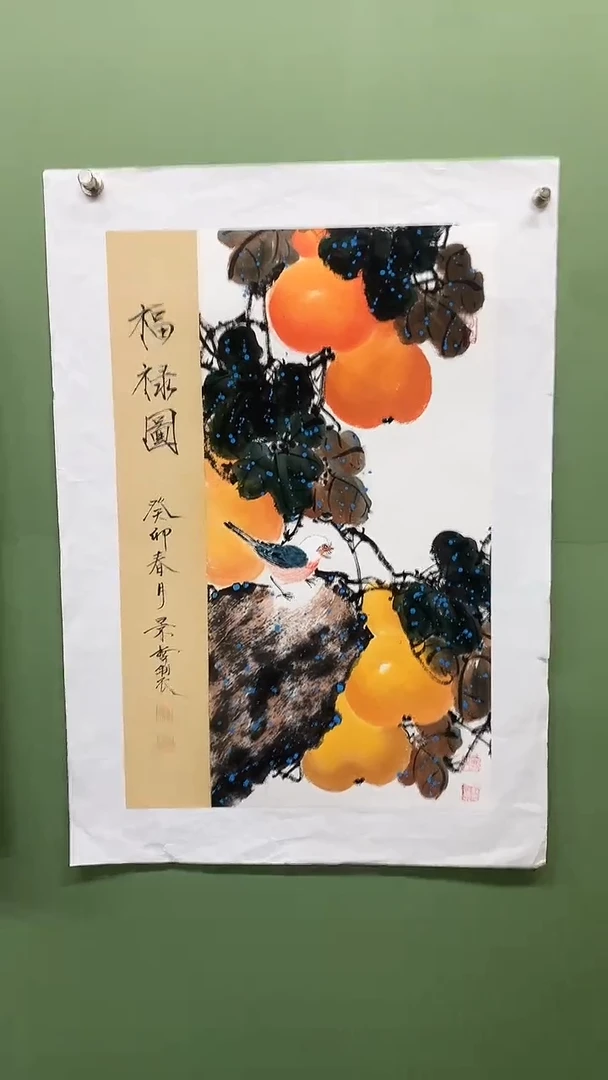 福祿圖
癸卯春月